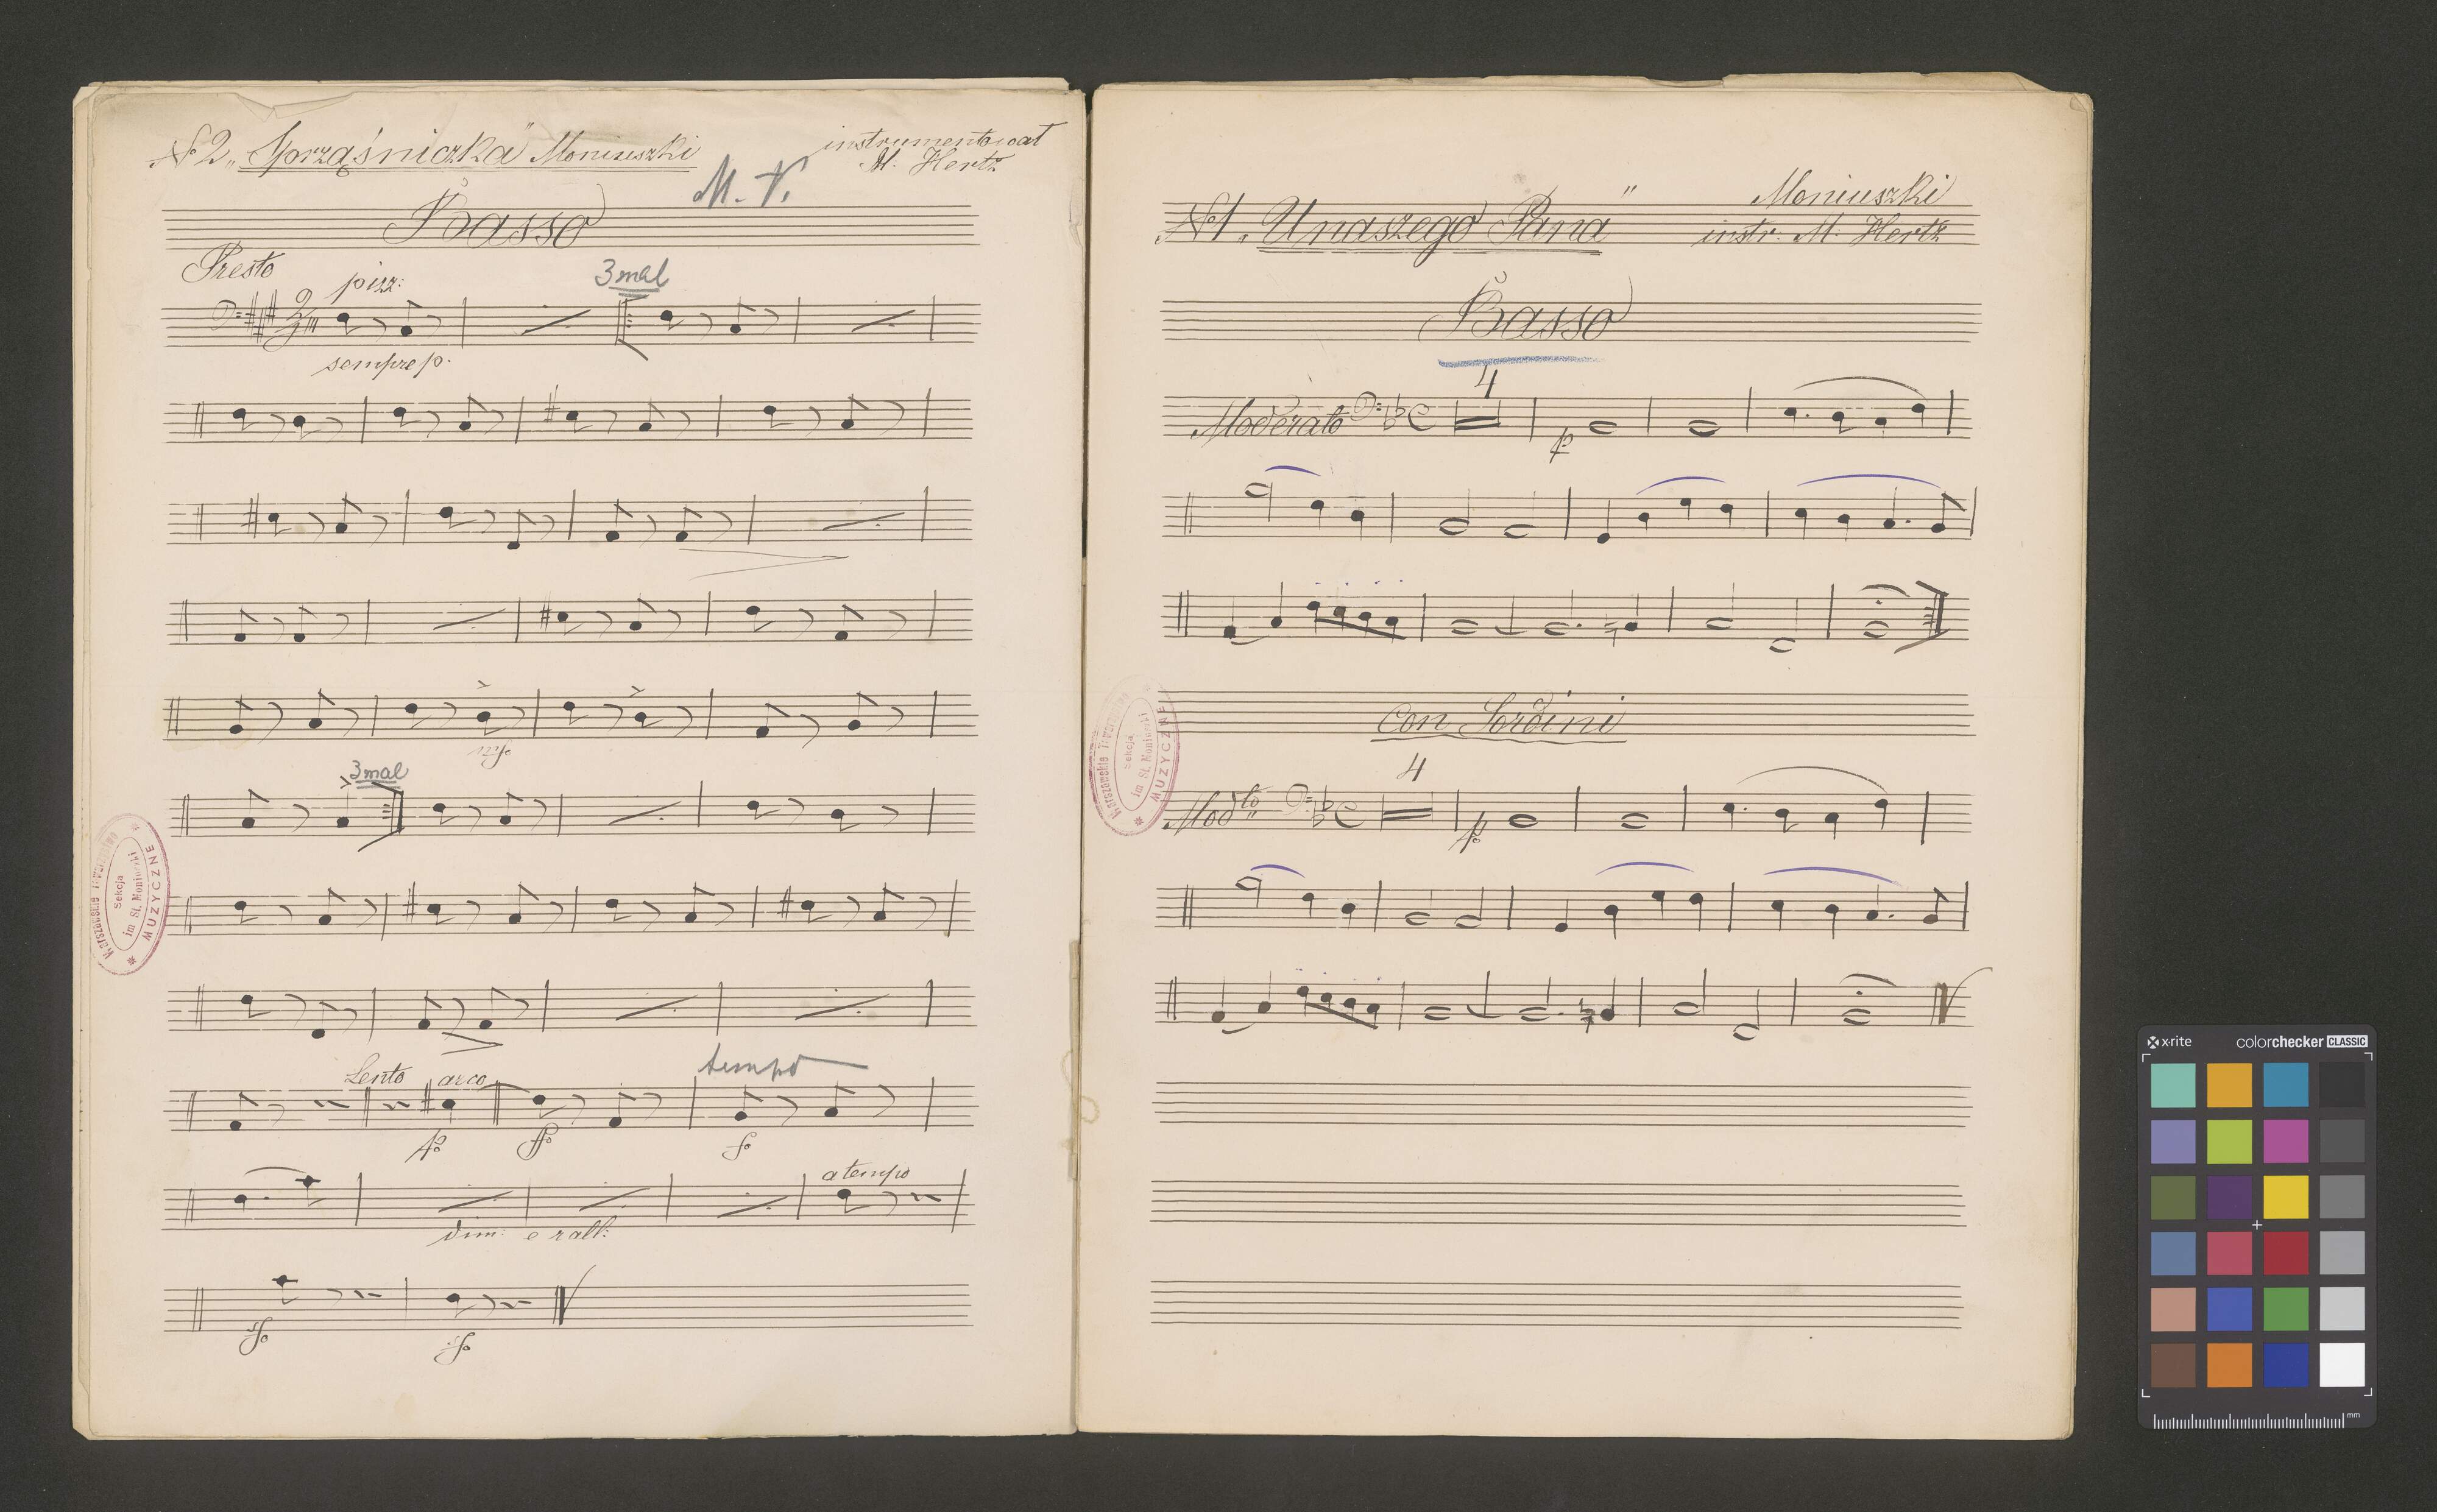 № 2 „Sprząśniczka" Moniuszki
instrumentował
M. Hertz
M. V.
Basso
Presto
pizz:
3 mal
2/4
sempre p.
mf
3 mal
Lento arco
tempo
p ff f
a tempo
dim: e rall:
sf sf
Warszawskie Towarzystwo
MUZYCZNE
Sekcja
im St. Moniuszki
№ 1 „U naszego Pana"
Moniuszki
instr. M. Hertz
Basso
4
Moderato
p
Con Sordini
4
Modto
p
Warszawskie Towarzystwo
MUZYCZNE
Sekcja
im St. Moniuszki
x-rite
colorchecker CLASSIC
mm